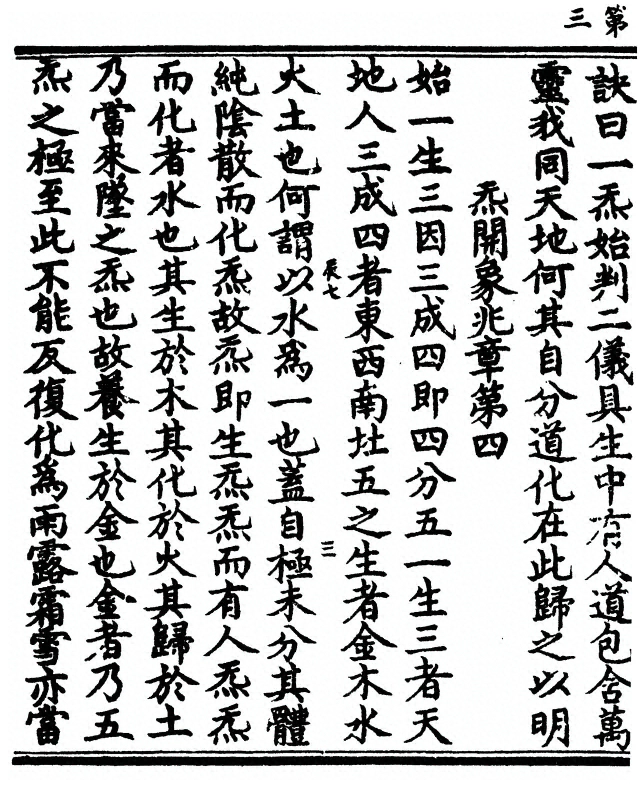 第三
訣曰一炁始判二儀具生中有人道包含萬
靈我同天地何其自分道化在此歸之以明
炁開象兆章第四
始一生三因三成四即四分五一生三者天
地人三成四者東西南北五之生者金木水
辰七
三
火土也何謂以水為一也蓋自極未分其體
純陰散而化炁故炁即生炁炁而有人炁炁
而化者水也其生於木其化於火其歸於土
乃當來墜之炁也故養生於金也金者乃五
炁之極至此不能反復化為雨露霜雪亦當